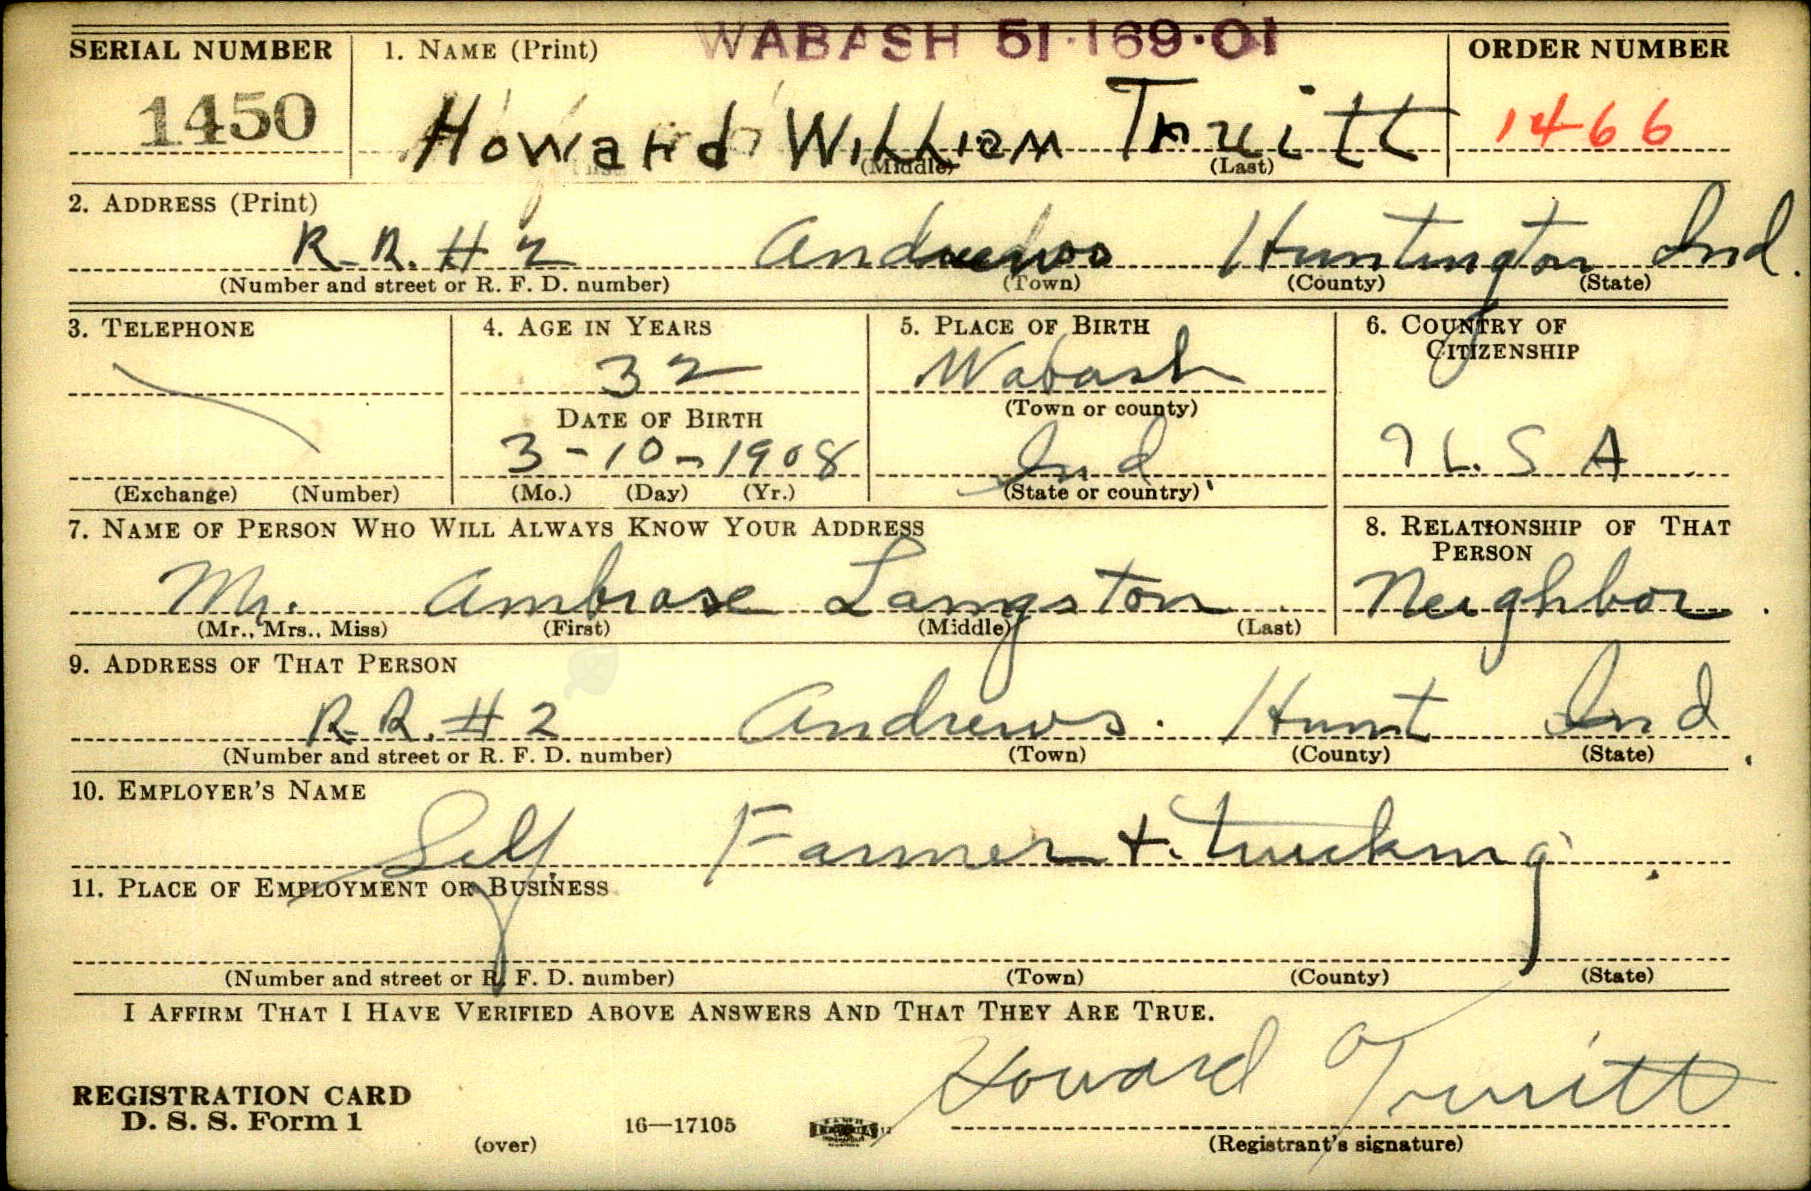 WABASH 51·169·01
SERIAL NUMBER 1. NAME (Print) ORDER NUMBER
1450 Howard William Truitt 1466
(Middle) (Last)
2. ADDRESS (Print)
R.R. # 2 Andrews Huntington Ind.
(Number and street or R. F. D. number) (Town) (County) (State)
3. TELEPHONE 4. AGE IN YEARS 5. PLACE OF BIRTH 6. COUNTRY OF CITIZENSHIP
32 Wabash
DATE OF BIRTH (Town or county)
3-10-1908 Ind. U.S A
(Exchange) (Number) (Mo.) (Day) (Yr.) (State or country)
7. NAME OF PERSON WHO WILL ALWAYS KNOW YOUR ADDRESS 8. RELATIONSHIP OF THAT PERSON
Mr. Ambrose Langston Neighbor.
(Mr., Mrs., Miss) (First) (Middle) (Last)
9. ADDRESS OF THAT PERSON
R.R. # 2 Andrews. Hunt Ind.
(Number and street or R. F. D. number) (Town) (County) (State)
10. EMPLOYER'S NAME
Self Farmer + trucking.
11. PLACE OF EMPLOYMENT OR BUSINESS
(Number and street or R. F. D. number) (Town) (County) (State)
I AFFIRM THAT I HAVE VERIFIED ABOVE ANSWERS AND THAT THEY ARE TRUE.
Howard Truitt
REGISTRATION CARD
D. S. S. Form 1 16—17105
(over) (Registrant's signature)